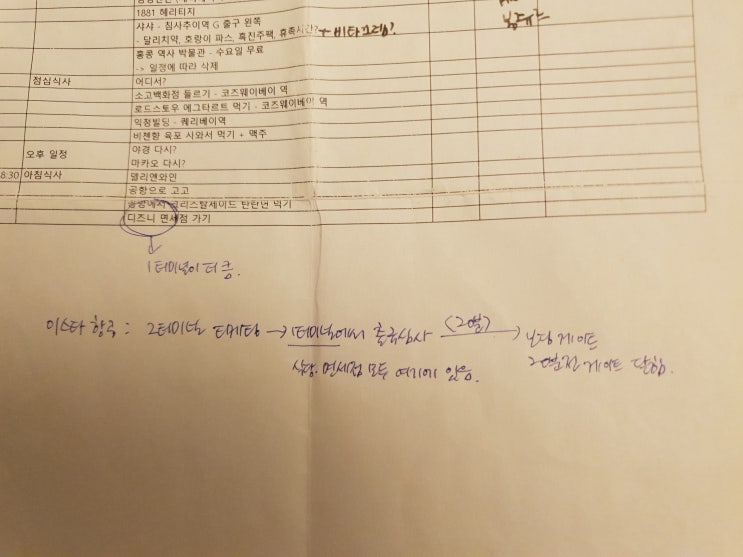 1881 헤리티지
샤샤 - 침사추이역 G 출구 왼쪽
- 달리치약, 호랑이 파스, 흑진주팩, 휴족시간? + 비타크림?
홍콩 역사 박물관 - 수요일 무료
-> 일정에 따라 삭제
점심식사 어디서?
소고백화점 들르기 - 코즈웨이베이 역
로드스토우 에그타르트 먹기 - 코즈웨이베이 역
익청빌딩 - 쿼리베이역
비젠향 육포 사와서 먹기 + 맥주
오후 일정 야경 다시?
마카오 다시?
8:30 아침식사 델리앤와인
공항으로 고고
공항에서 크리스탈제이드 탄탄면 먹기
디즈니 면세점 가기
1터미널이 더 큼.
이스타 항공 : 2터미널 → 1터미널에서 출국심사 → 게이트
상점, 면세점 모두 여기에 있음.
게이트 닫힘.